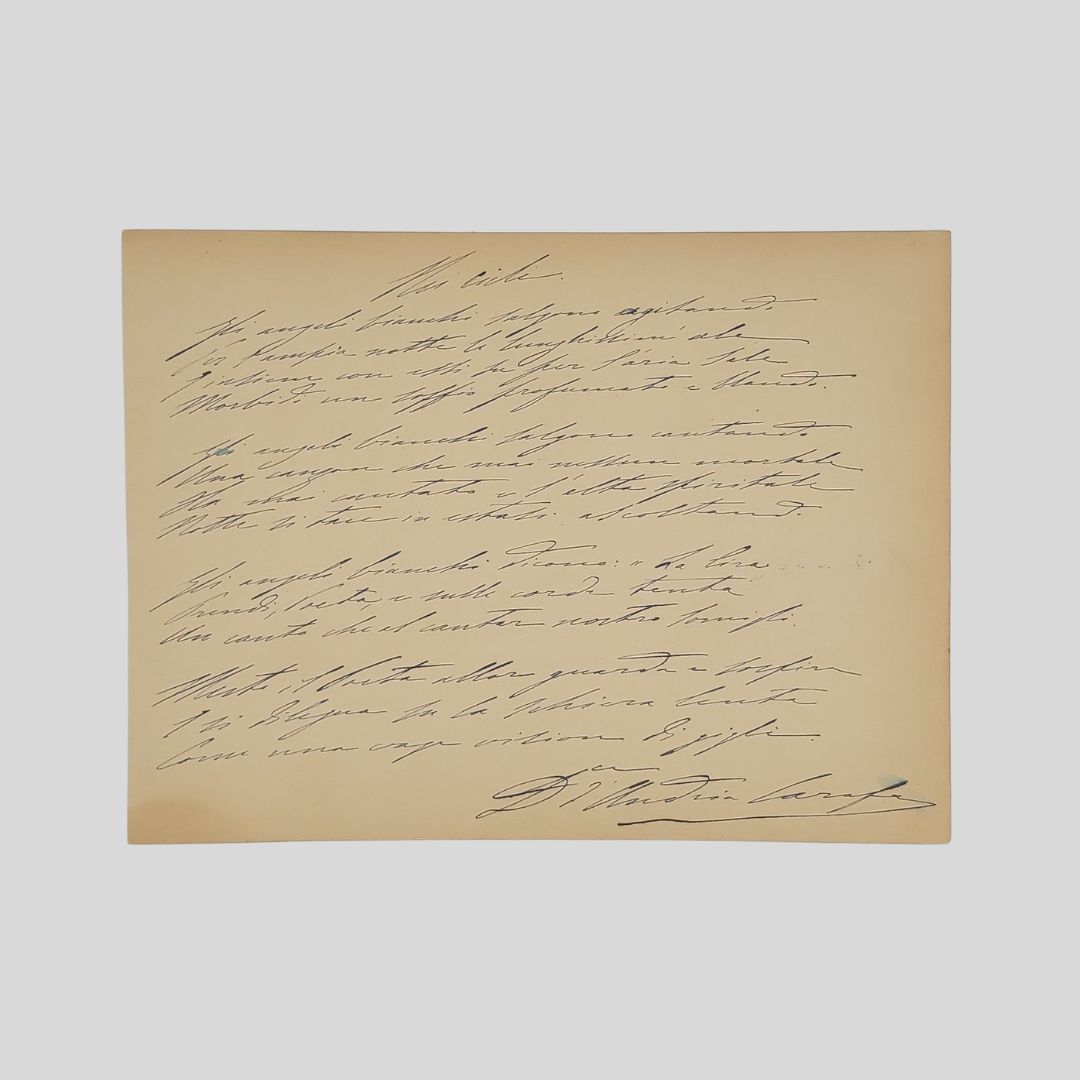 Nei cieli.
Gli angeli bianchi salgono agitando
Per l'ampia notte le lunghissim' ale
con essi su per l'aria sale
Morbido un soffio profumato e blando.
Gli angeli bianchi salgono cantando
Una canzon che mai nessun mortale
Ha mai cantato e l'alta spiritale
Notte si tace in estasi ascoltando.
Gli angeli bianchi dicono: "La lira
Prendi, Poeta, e sulle corde tenta
Un canto che al cantar nostro somigli.
Mesto il Poeta allor guarda e sospira
E si dilegua su la schiera lenta
Come una vaga vision di gigli.
D.ca d'Andria Carafa